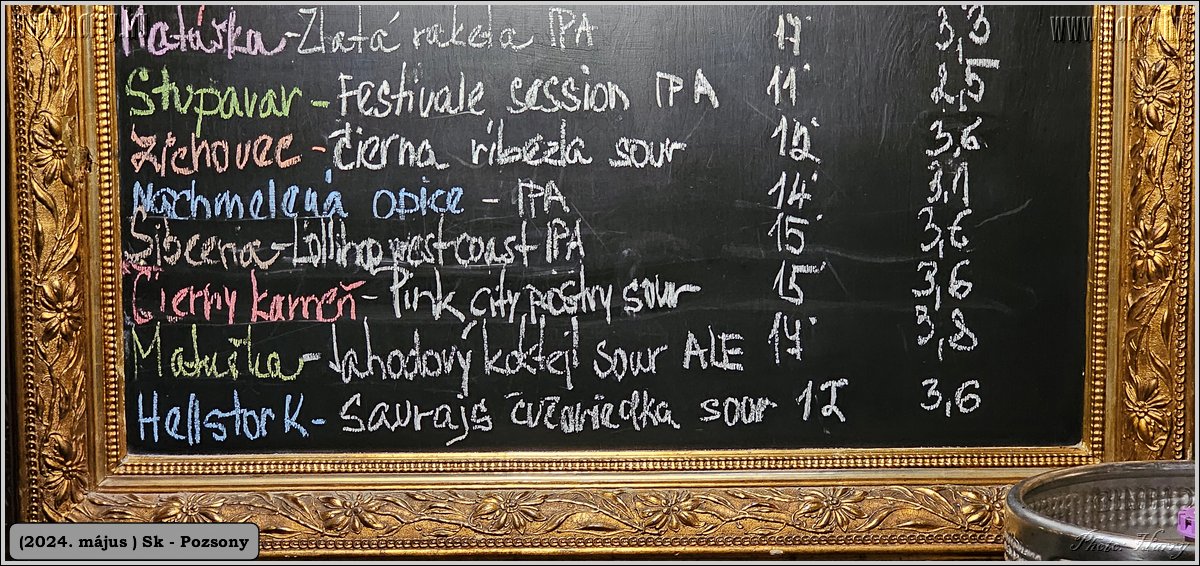 Matúška - Zlatá raketa IPA 17° 3,3
Stupavar - Festivale session IPA 11° 2,5
Zichovec - čierna ríbezla sour 12° 3,6
Nachmelená opice - IPA 14° 3,1
Sibeeria - Lollihop westcoast IPA 15° 3,6
Čierny kameň - Pink city pastry sour 15° 3,6
Matuška - Jahodový koktejl sour ALE 17° 3,8
Hellstork - Saurajs sour 12 3,6
(2024. május ) Sk - Pozsony
Photo: Harry